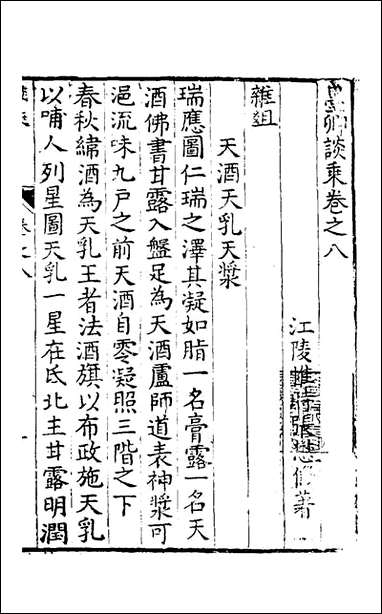 談乘卷之八
江陵張懋修著
雜俎
天酒天乳天漿
瑞應圖仁瑞之澤其凝如脂一名膏露一名天
酒佛書甘露入盤足為天酒盧師道表神漿可
浥流味九戶之前天酒自零凝照三階之下
春秋緯酒為天乳王者法酒旗以布政施天乳
以哺人列星圖天乳一星在氐北主甘露明潤
卷之八